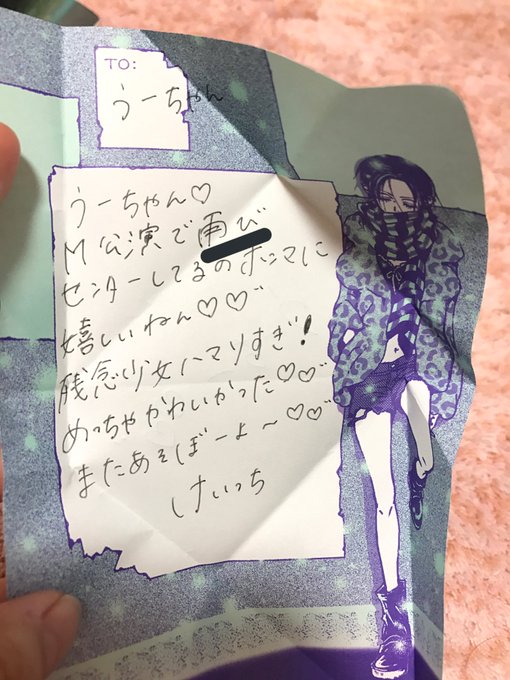 TO:
うーちゃん
うーちゃん♡
M公演で雨び
センターしてるのホンマに
嬉しいねん♡♡"
残念少女ハマりすぎ!
めっちゃかわいかった♡♡"
またあそぼーよ〜♡♡"
けいっち